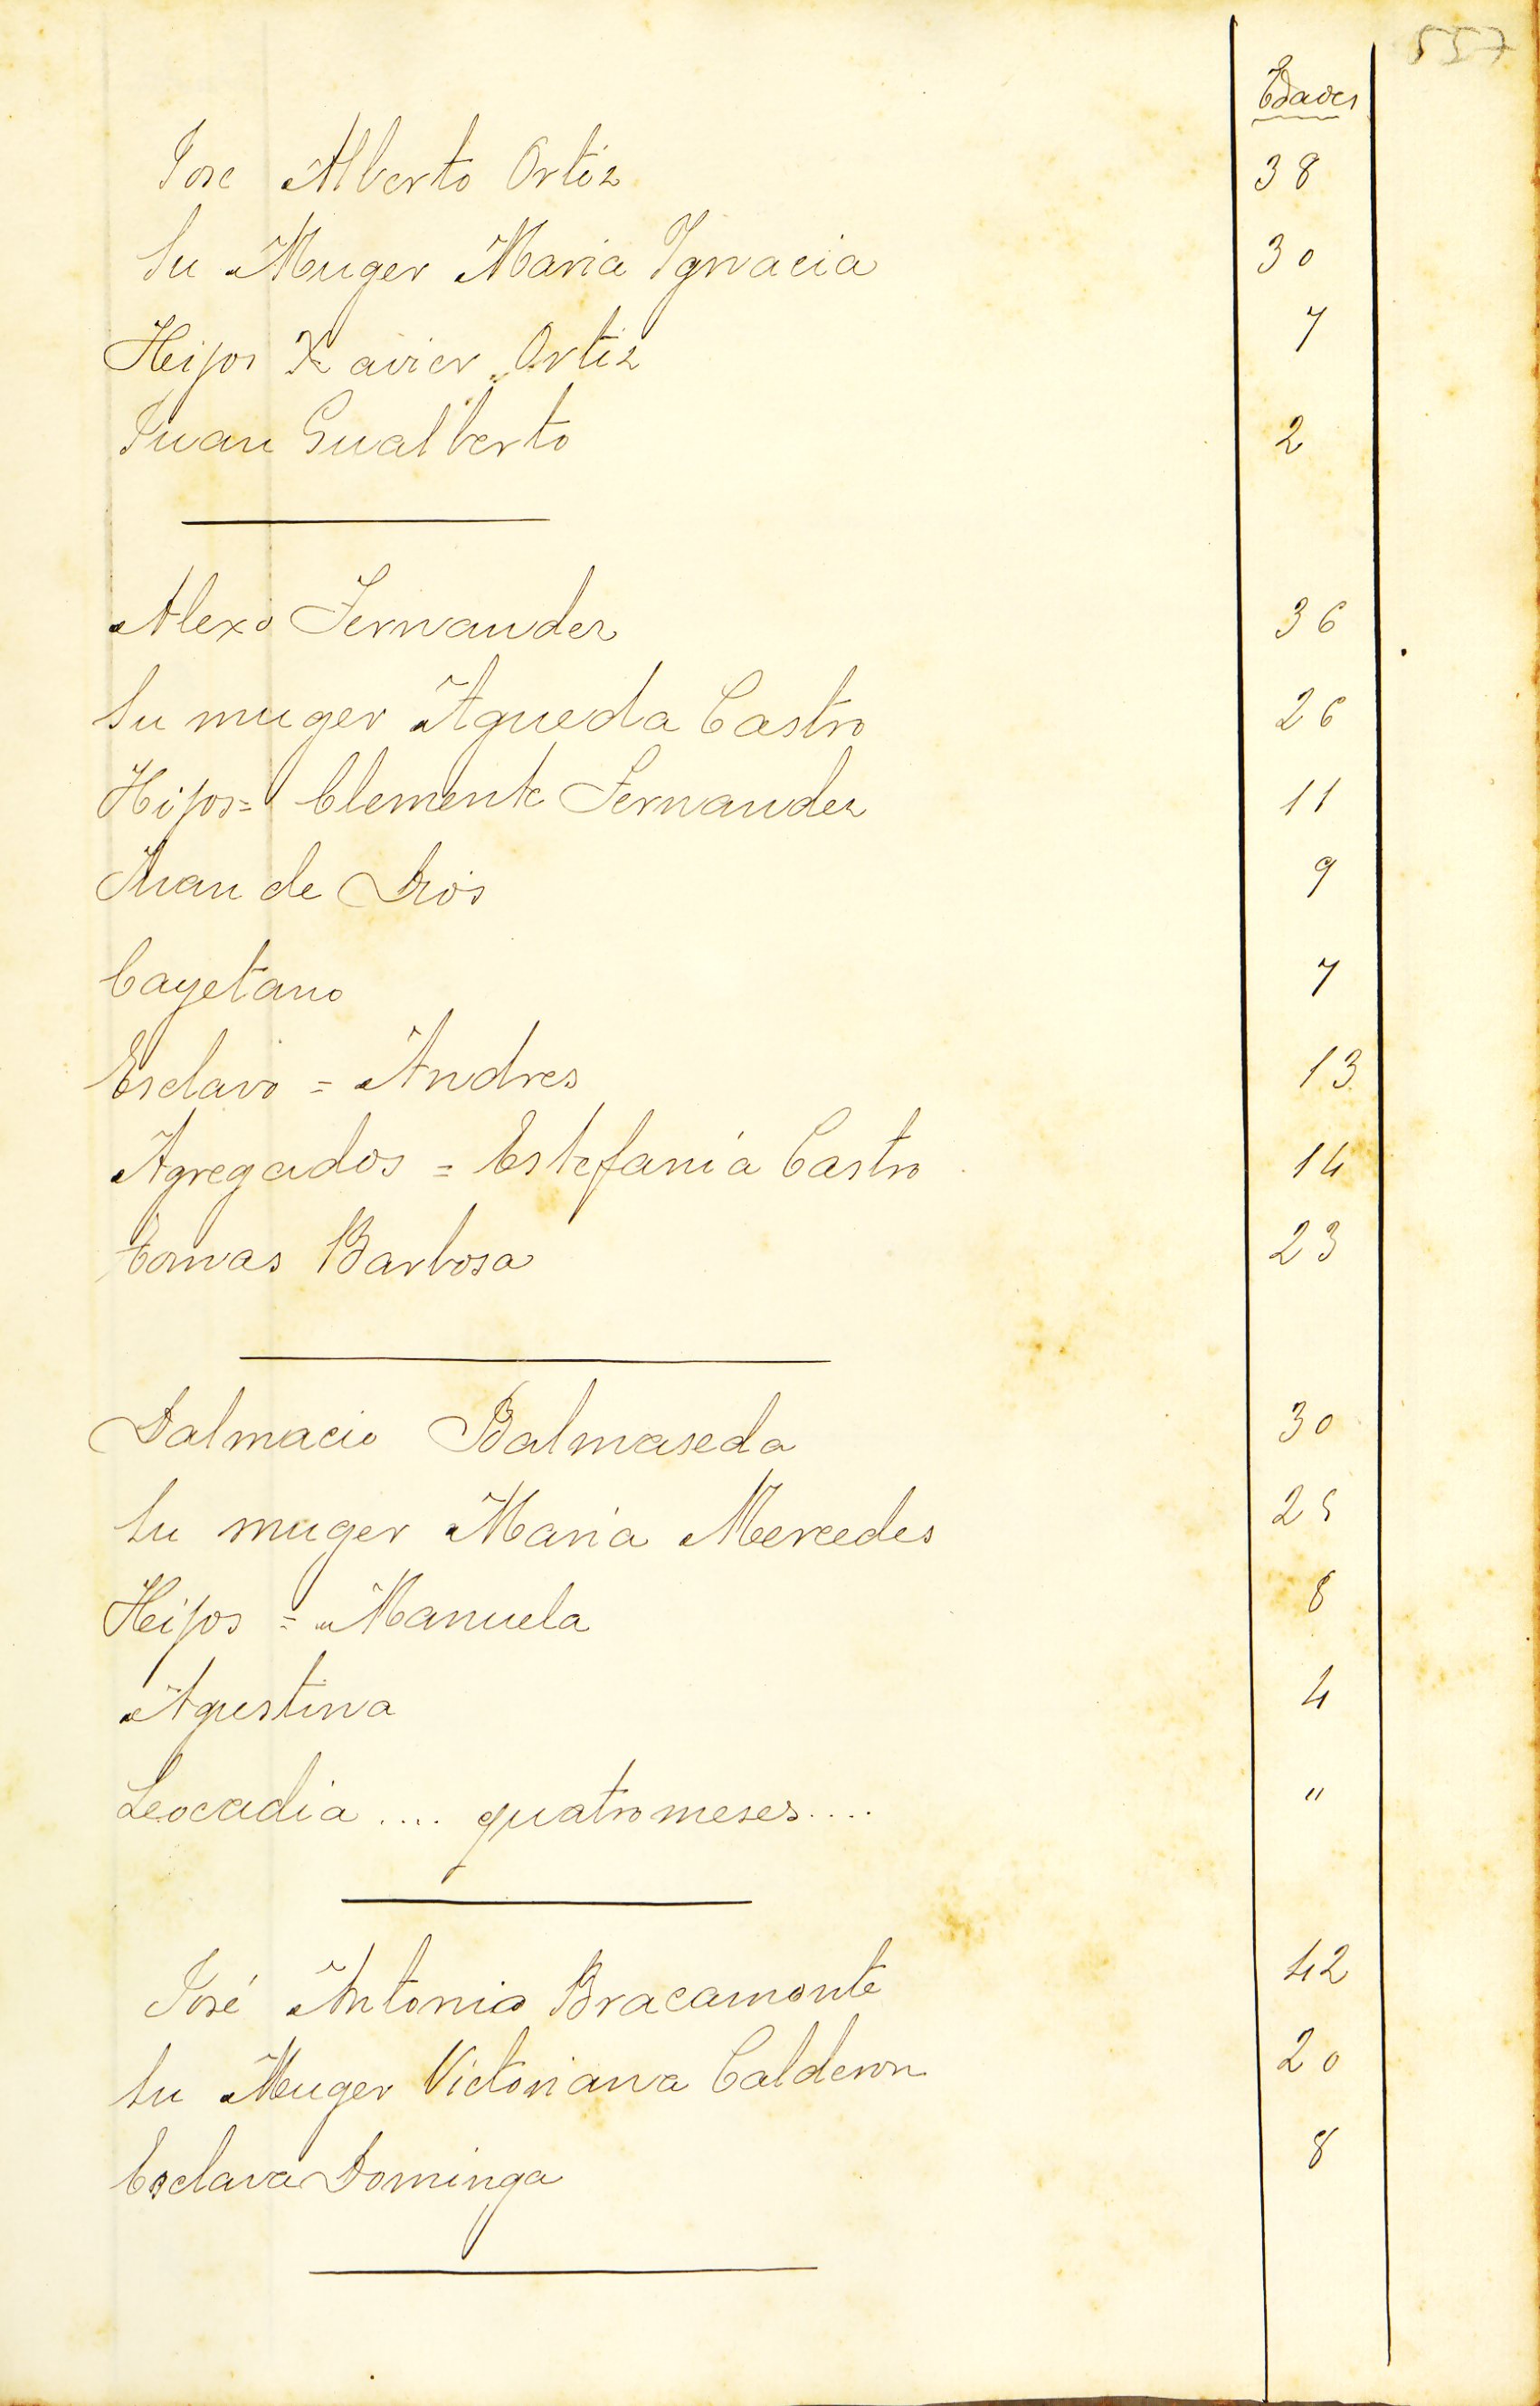 557
Edades
Jose Alberto Ortiz 38
Su Muger Maria Ygnacia 30
Hijos Xavier Ortiz 7
Juan Gualberto 2
Alexo Fernandez 36
Su muger Agueda Castro 26
Hijos = Clemente Fernandez 11
Juan de Dios 9
Cayetano 7
Esclavo = Andres 13
Agregados = Estefania Castro 14
Tomas Barbosa 23
Dalmacio Balmaseda 30
Su muger Maria Mercedes 25
Hijos = Manuela 8
Agustina 4
Leocadia .... quatro meses .... "
José Antonio Bracamonte 42
Su Muger Victoriana Calderon 20
Esclava Dominga 8